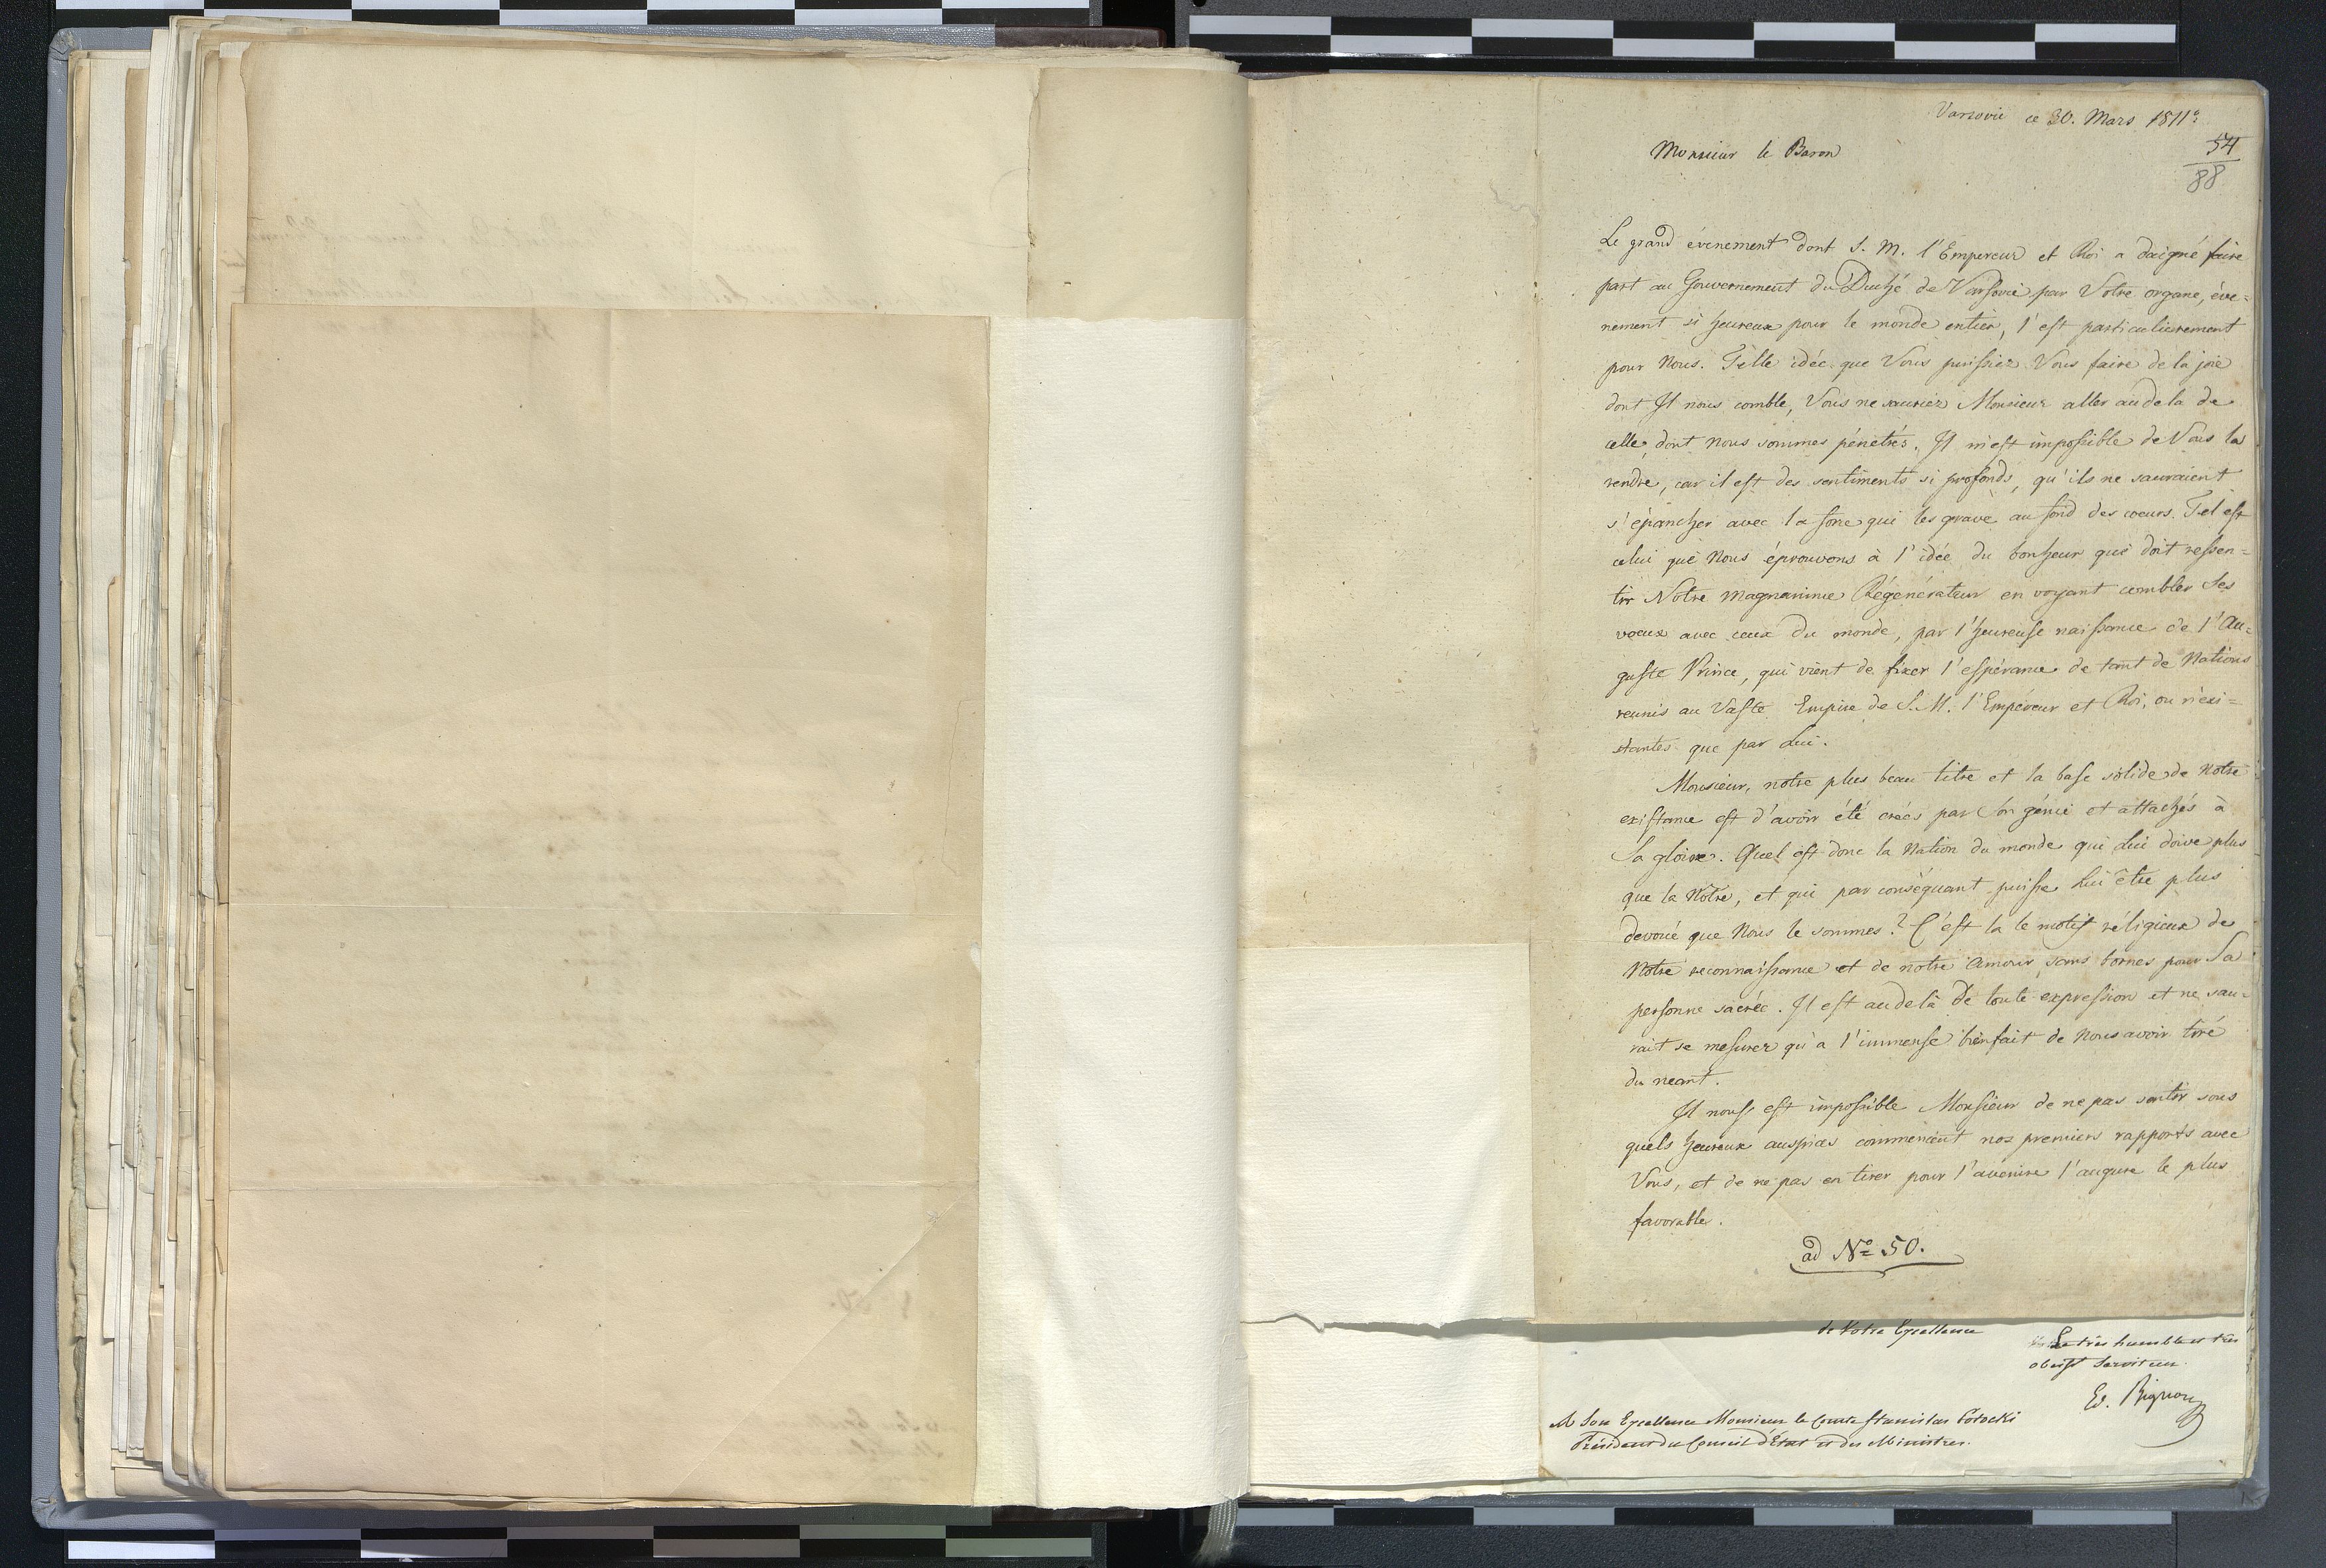 Varsovie ce 30. Mars 1811.
54
88
Monsieur le Baron
Le grand évenement dont S. M. l'Empereur et Roi a daigné faire
part au Gouvernement du Duché de Varsovie par Votre organe, éve=
nement si heureux pour le monde entier, l'est particulierement
pour Nous. Telle idée que Vous puissiez Vous faire de la joie
dont Il nous comble, Vous ne sauriez Monsieur aller au dela de
celle, dont nous sommes pénétrés. Il m'est impossible de Vous la
rendre, car il est des sentiments si profonds, qu'ils ne sauraient
s'épancher avec la force qui les grave au fond des coeurs. Tel est
celui que Nous éprouvons à l'idée du bonheur que doit ressen=
tir Notre magnanime Régénérateur en voyant combler Ses
voeux avec ceux du monde, par l'heureuse naissance de l'Au=
guste Prince, qui vient de fixer l'espérance de tant de Nations
reunis au Vaste Empire de S. M. l'Empereur et Roi, ou n'exi=
stantes que par Lui.
Monsieur, notre plus beau titre et la base solide de Notre
existance est d'avoir été créés par Son génie et attachés à
Sa gloire. Quel est donc la Nation du monde qui Lui doive plus
que la Nôtre, et qui par conséquant puisse Lui être plus
devoué que Nous le sommes? C'est la le motif réligieux de
Notre reconnaissance et de notre Amour sans bornes pour Sa
personne sacrée. Il est au delà de toute expression et ne sau=
rait se mesurer qu'à l'immense bienfait de Nous avoir tiré
du neant.
Il nous est impossible Monsieur de ne pas sentir sous
quels heureux auspices commencent nos premiers rapports avec
Vous, et de ne pas en tirer pour l'avenire l'augure le plus
favorable.
ad No 50.
de Votre Excellence
Le très humble et très
obeisst Serviteur.
Ed. Bignon
A Son Excellence Monsieur le Comte Stanislas Potocki
Président du Conseil d'Etat et des Ministres.